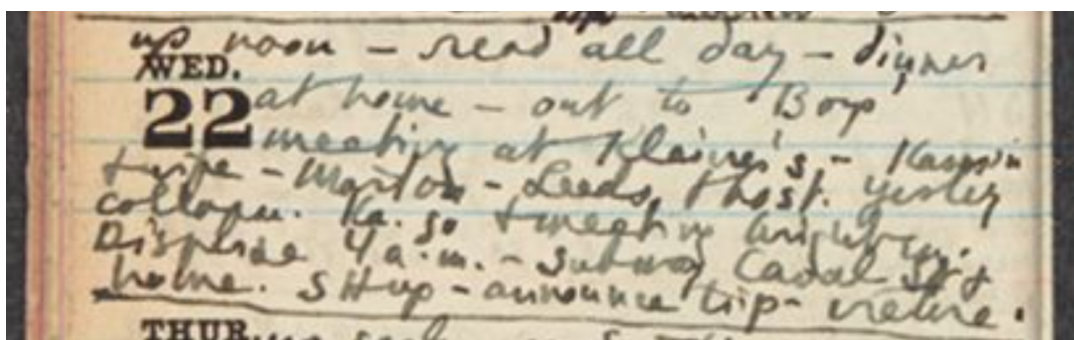 up noon – read all day – dinner
WED.
22 at home – out to Boys'
meeting at Kleiner's – Kamin
+ wife – Morton – Leeds, Thost. Yesley
collapse. Ka. go + meeting brightens.
Disperse 4 a.m. – Subway Canal St. +
home. SH up – announce trip – retire.
THUR.